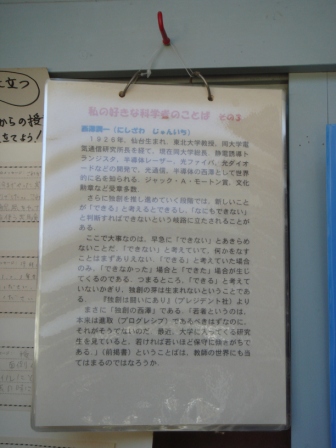 私の好きな科学者のことば その3
西澤潤一（にしざわ じゅんいち）
1926年、仙台生まれ。東北大学教授、同大学電
気通信研究所長を経て、現在同大学総長。静電誘導ト
ランジスタ、半導体レーザー、光ファイバ、光ダイオ
ードなどの開発で、光通信、半導体の西澤として世界
的に名を知られる。ジャック・A・モートン賞、文化
勲章など受章多数。
さらに独創を推し進めていく段階では、新しいこと
が「できる」と考えるとできるし、「なにもできない」
と判断すればできないという岐路に立たされることが
ある。
ここで大事なのは、早急に「できない」とあきらめ
ないことだ。「できない」と考えていて、何かをなす
ことはまずありえない。「できる」と考えていた場合
のみ、「できなかった」場合と「できた」場合が生じ
てくるのである。つまるところ、「できる」と考えて
いないかぎり、独創の芽は生まれないということであ
る。 『独創は闘いにあり』（プレジデント社）より
まさに「独創の西澤」である。「若者というのは、
本来は進取（プログレシブ）であるべきはずなのに、
それがそうでないのだ。最近、大学に入ってくる研究
生を見ていると、若ければ若いほど保守に傾きがちで
ある。」（前掲書）ということばは、教師の世界にも当
てはまるのではなろうか。
に立つ
からの授
立てよう！